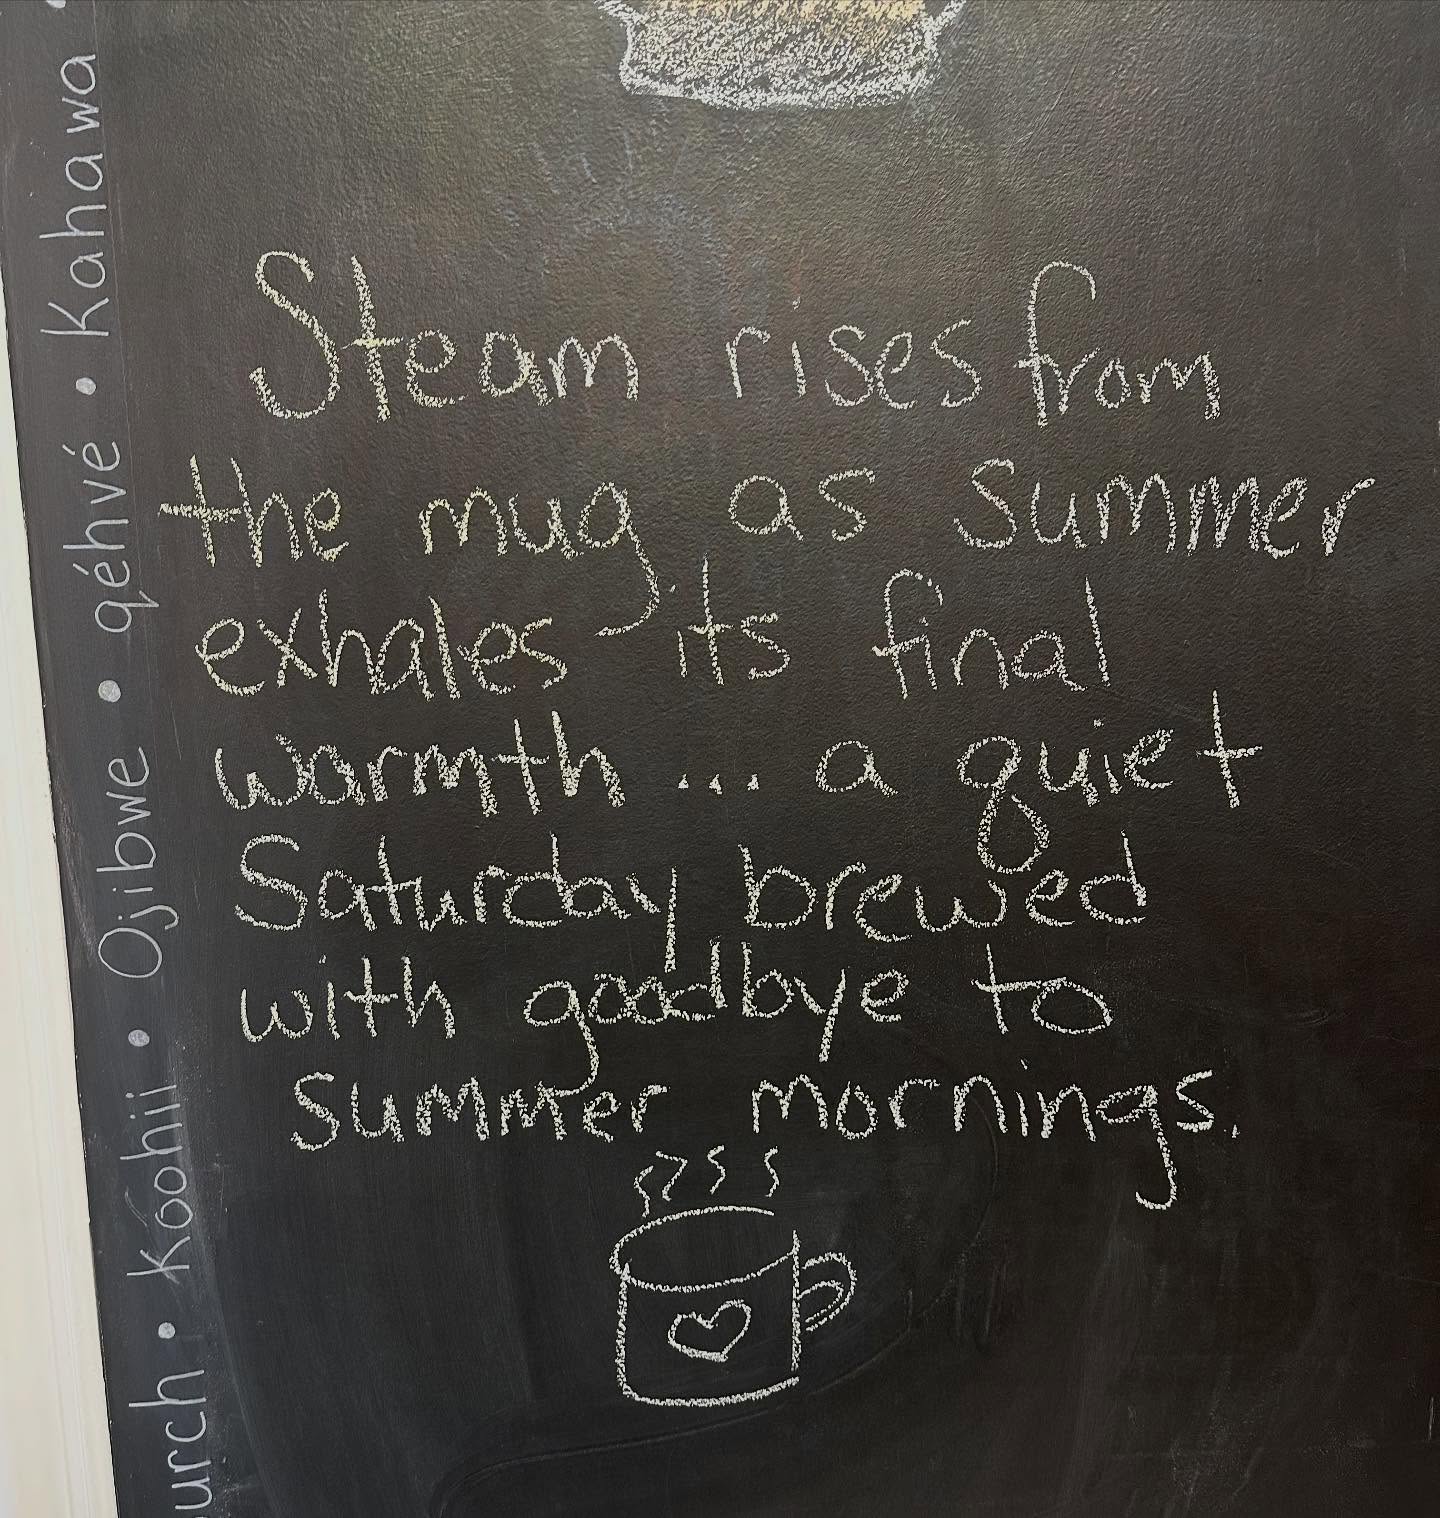 Steam rises from
the mug as summer
exhales its final
warmth... a quiet
Saturday brewed
with goodbye to
summer mornings.
urch • Kóohii • Ojibwe • qéhvé • Kahawa •